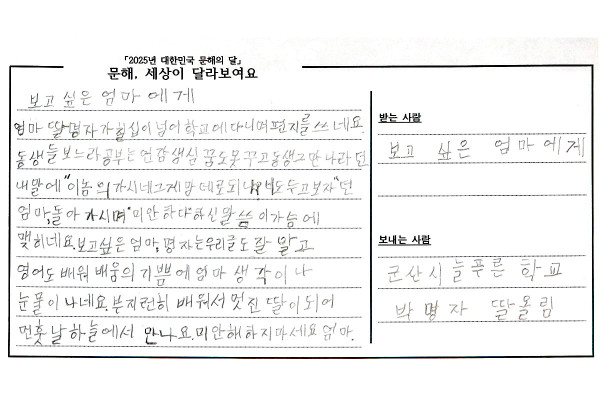 「2025년 대한민국 문해의 달」
문해, 세상이 달라보여요
보고 싶은 엄마에게
엄마 딸 명자가 칠십이 넘어 학교에 다니며 편지를 쓰네요.
동생들 보느라 공부는 언감생심 꿈도 못 꾸고 동생 그만 나라 던
내 말에 "이놈의 가시네 그게 맘 데로 되냐? 너도 두고보자" 던
엄마, 돌아 가시며 "미안 하다" 하신 말 씀 이 가슴 에
맺히네요. 보고싶은 엄마, 명자는 우리글도 잘 알고
영어도 배워 배움의 기쁨에 엄마 생각이 나
눈물이 나네요. 부지런히 배워서 멋진 딸이 되어
먼훗 날 하늘에서 만나요. 미안해 하지마세요 엄마.
받는 사람
보고 싶은 엄마에게
보내는 사람
군산시 늘푸른 학교
박명자 딸 올림